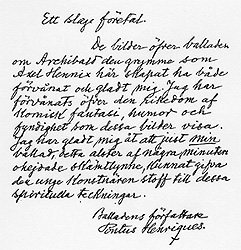 Ett slags företal.
De bilder öfver balladen
om Archibald den grymme som
Axel Hennix här skapat ha både
förvånat och gladt mig. Jag har
förvånats öfver den rikedom af
komisk fantasi, humor och
fyndighet som dessa bilder visa.
Jag har gladt mig åt att just min
ballad, detta alster af några minuters
ohejdade skämtlynne, kunnat gifva
den unge konstnären stoff till dessa
spirituella teckningar.
Balladens författare
Julius Henriques.